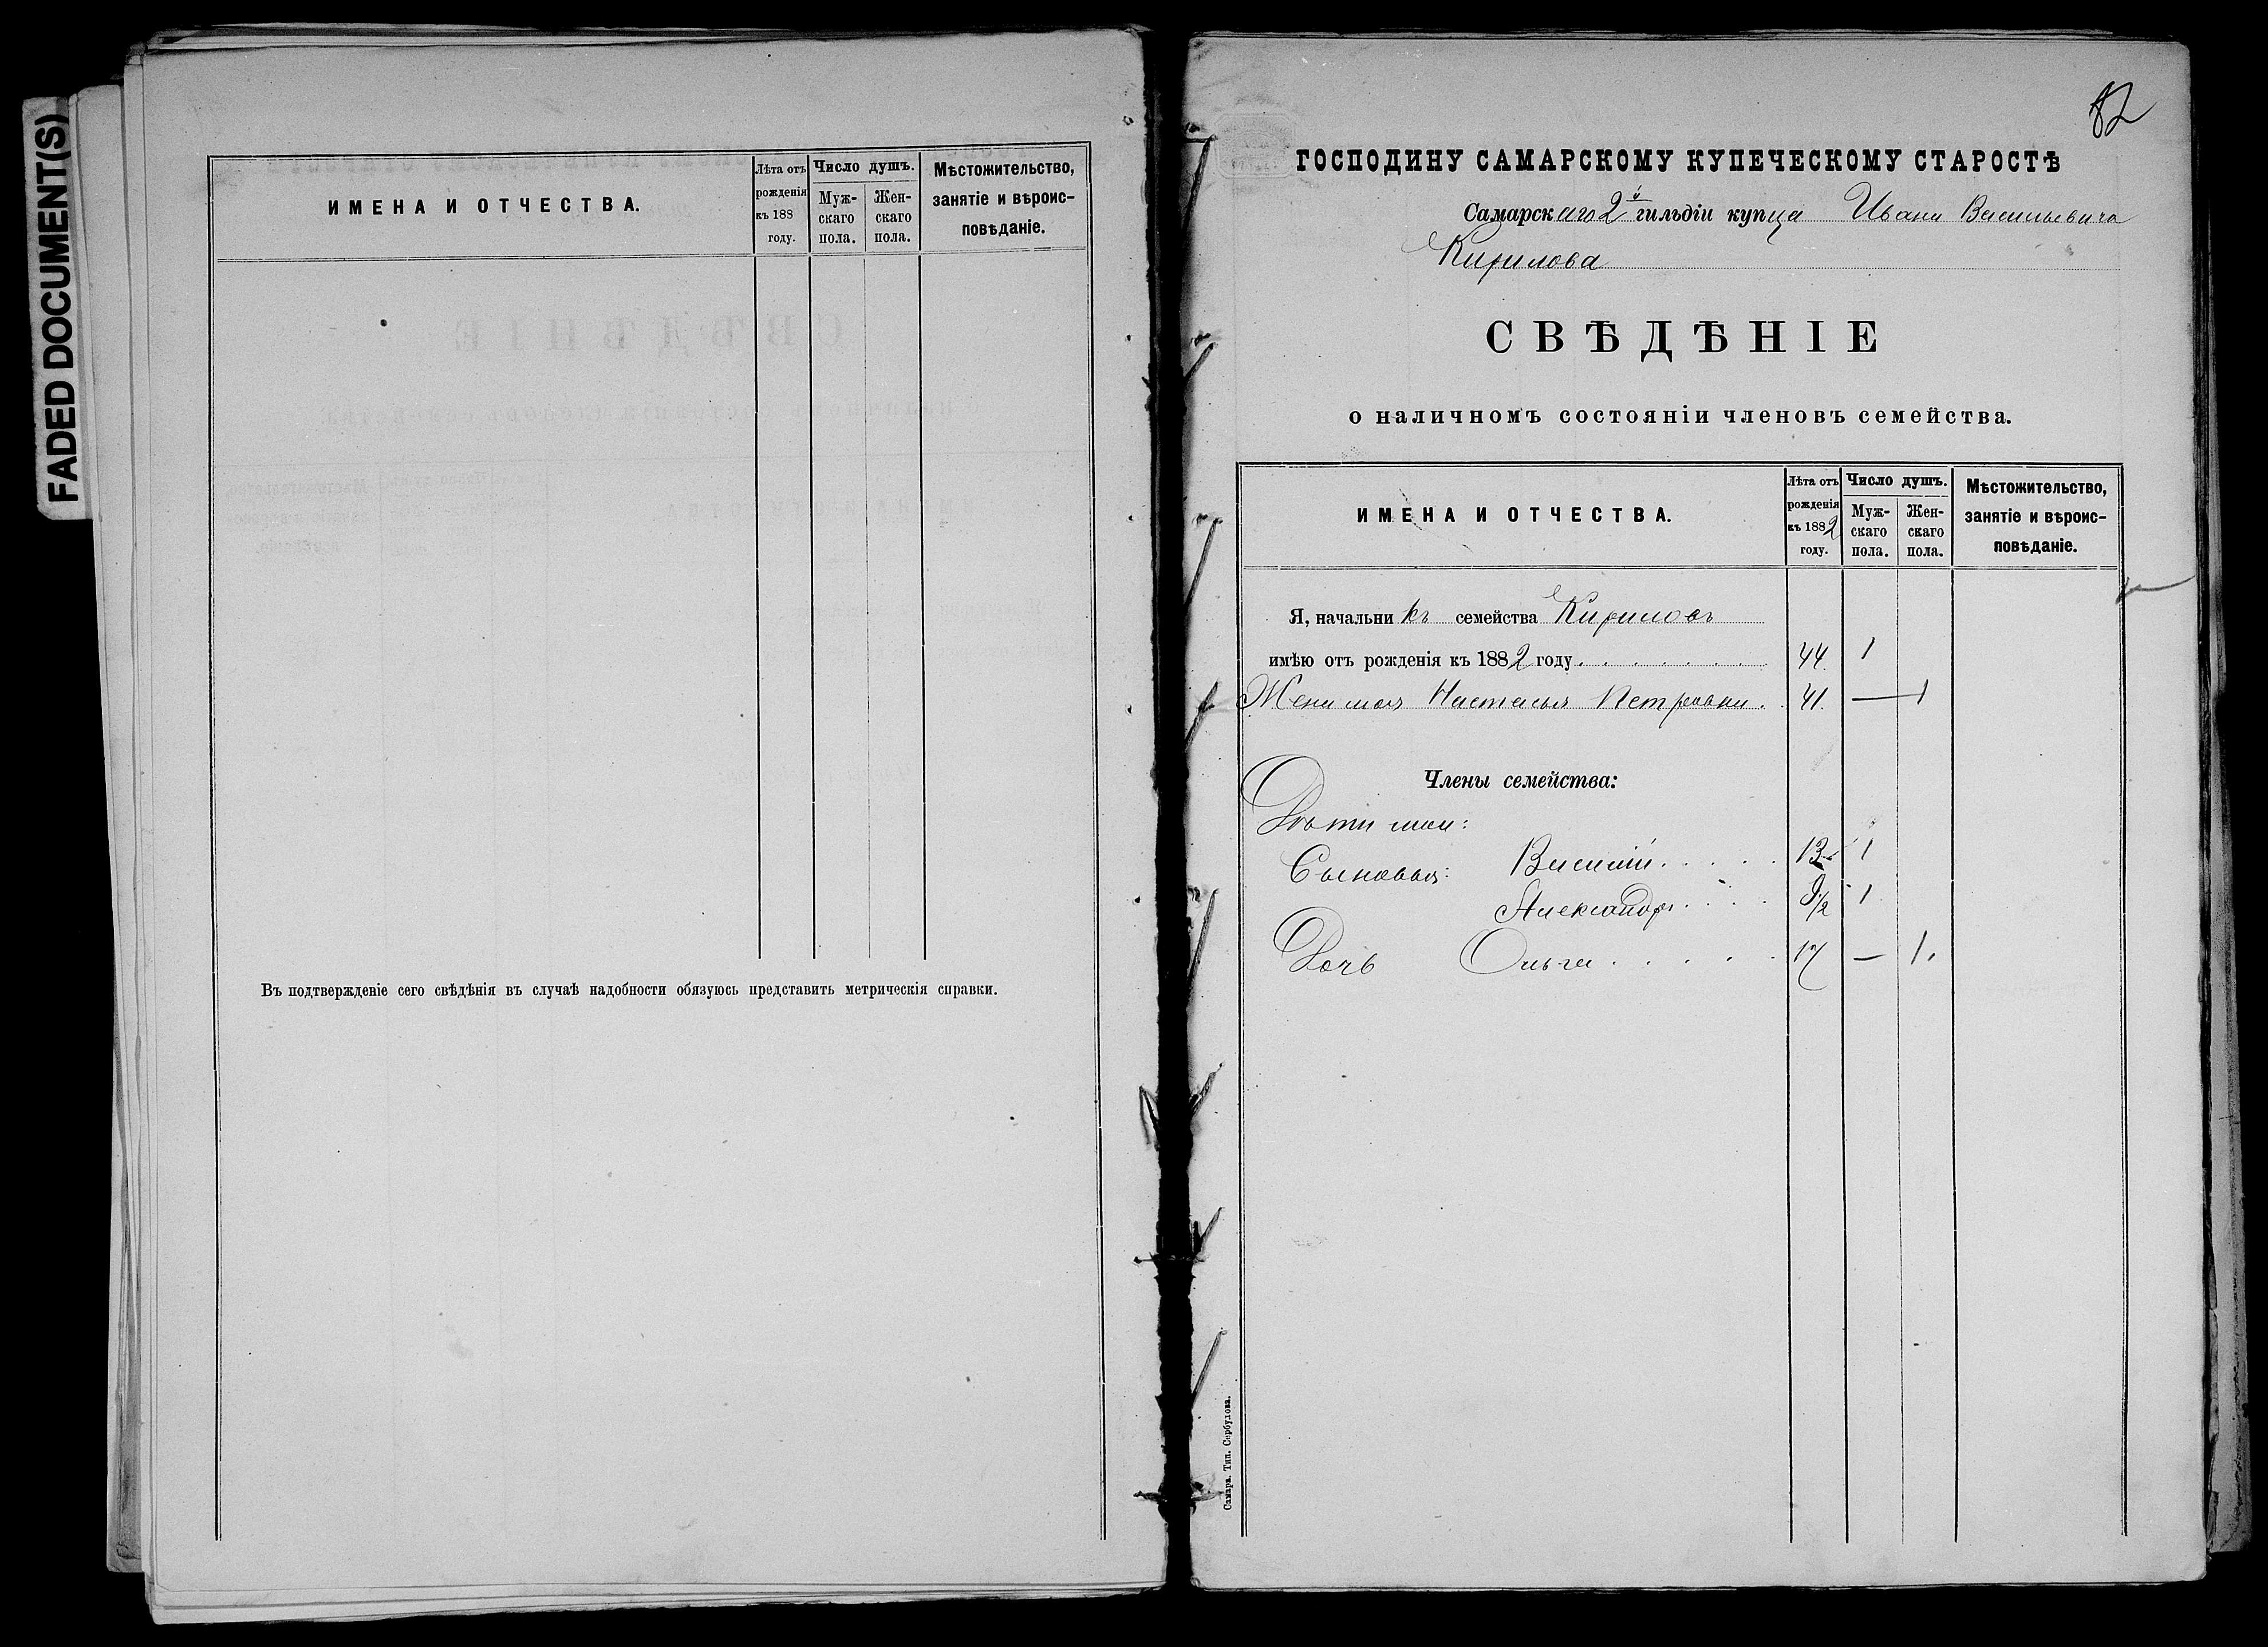 FADED DOCUMENT(S)
ИМЕНА И ОТЧЕСТВА.
Лѣта отъ рожденія къ 188 году.
Число душъ.
Муж-скаго пола.
Жен-скаго пола.
Мѣстожительство, занятіе и вѣроис-повѣданіе.
Въ подтвержденіе сего свѣдѣнія въ случаѣ надобности обязуюсь представить метрическія справки.
82
ГОСПОДИНУ САМАРСКОМУ КУПЕЧЕСКОМУ СТАРОСТѢ
Самарскаго 2й гильдіи купца Ивана Васильевича
Кирилова
СВѢДѢНІЕ
о наличномъ состояніи членовъ семейства.
ИМЕНА И ОТЧЕСТВА.
Лѣта отъ рожденія къ 1882 году.
Число душъ.
Муж-скаго пола.
Жен-скаго пола.
Мѣстожительство, занятіе и вѣроис-повѣданіе.
Я, начальникъ семейства Кириловъ
имѣю отъ рожденія къ 1882 году . . . . . . . 44. 1
Жена моя Настасья Петровна. 41. — 1
Члены семейства:
Дѣти мои:
Сыновья: Василій . . . . . 13 1
Александръ . . . . 9½ 1
Дочь Ольга . . . . . 17 — 1.
Самара. Тип. Сербулова.